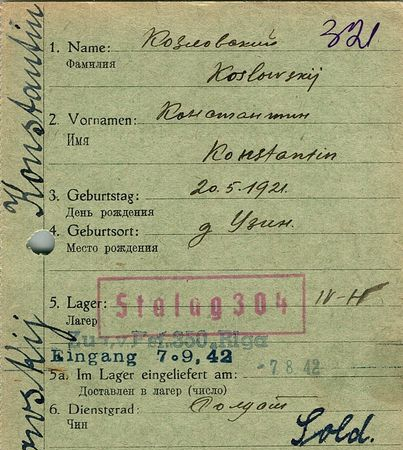 321
1. Name: Козловский
Фамилия
Koslowskij
2. Vornamen: Константин
Имя
Konstantin
3. Geburtstag: 20.5.1921.
День рождения
4. Geburtsort: д Узин.
Место рождения
5. Lager: Stalag 304 IV-H
Лагер
350, Riga
Eingang 7.9.42
7 8. 42
5a. Im Lager eingeliefert am:
Доставлен в лагер (число)
6. Dienstgrad: Солдат
Чин
Sold.
Konstantin